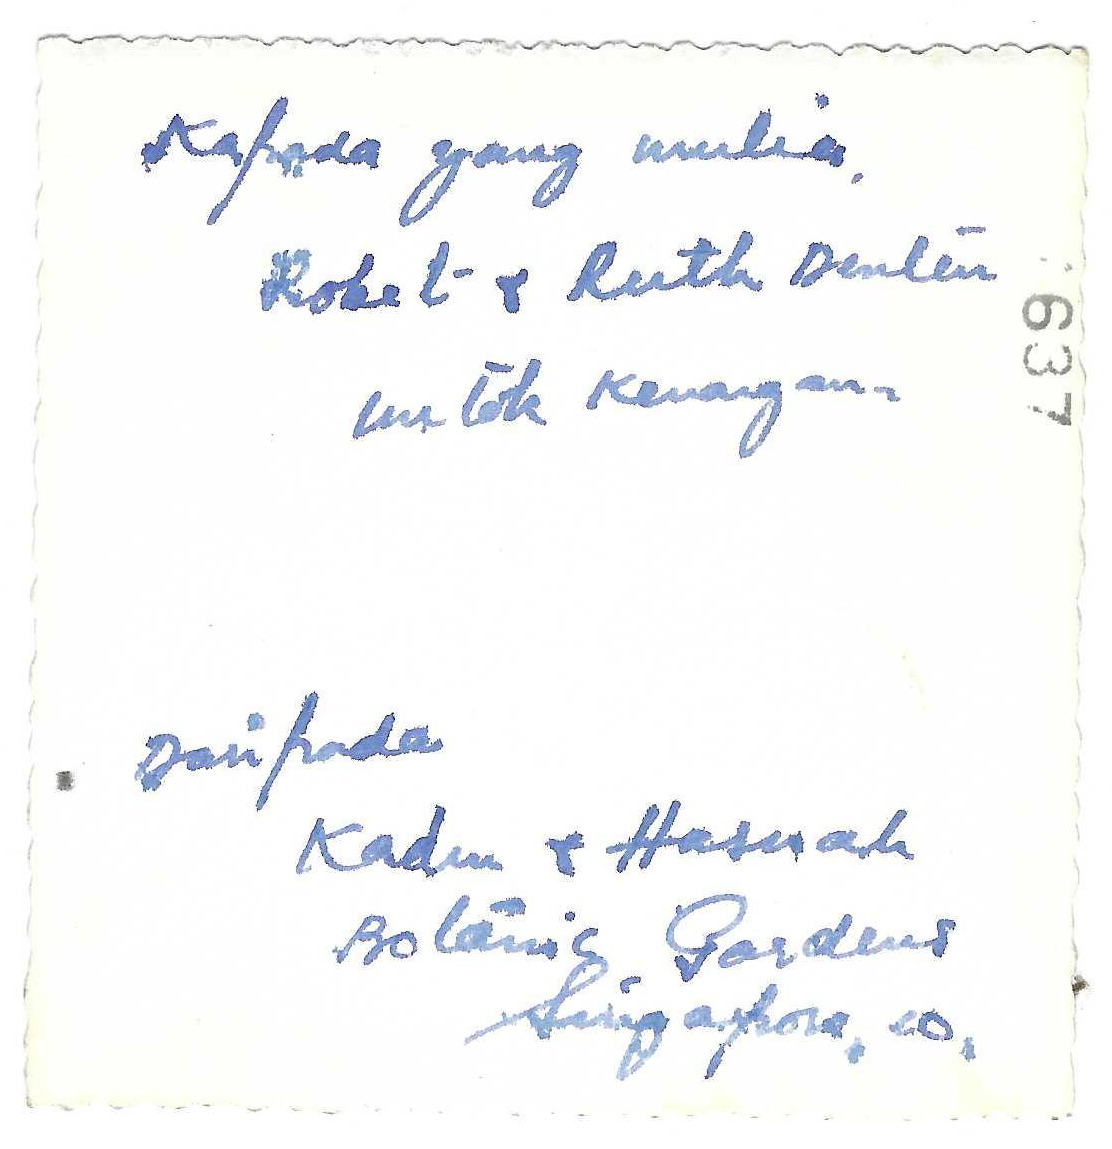 Kapada yang mulia,
Robet & Ruth Denten
untok Kenangan
637
Daripada
Kadim & Hasnah
Botanic Gardens
Singapore, 10.